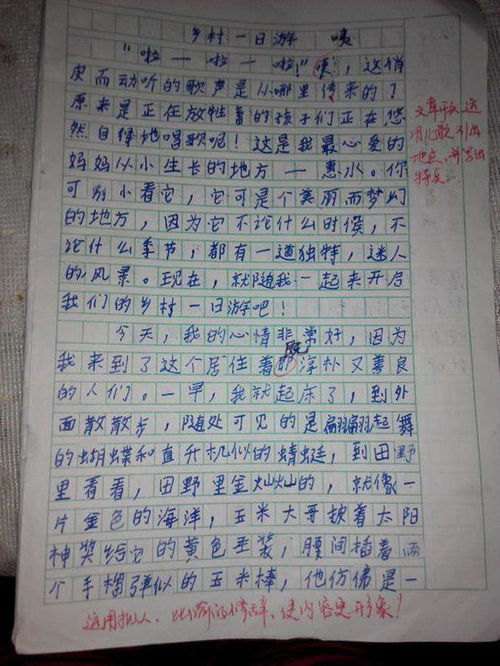 乡村一日游 咦
“啦—啦—啦！”咦，这俏
皮而动听的歌声是从哪里传来的？
原来是正在放牲畜的孩子们正在悠
然自得地唱歌呢！这是我最心爱的
妈妈从小生长的地方—惠水。你
可别小看它，它可是个美丽而梦幻
的地方，因为它不论什么时候，不
论什么季节，都有一道独特，迷人
的风景。现在，就随我一起来开启
我们的乡村一日游吧！
今天，我的心情非常好，因为
我来到了这个居住着既淳朴又善良
的人们。一早，我就起床了，到外
面散散步，随处可见的是翩翩起舞
的蝴蝶和直升机似的蜻蜓，到田野
里看看，田野里金灿灿的，就像一
片金色的海洋，玉米大哥披着太阳
神奖给它的黄色圣装，腰间插着两
个手榴弹似的玉米棒，他仿佛是一
文章开头运
用儿歌引出
地点，并写出
特点。
运用拟人、比喻的修辞，使内容更形象！